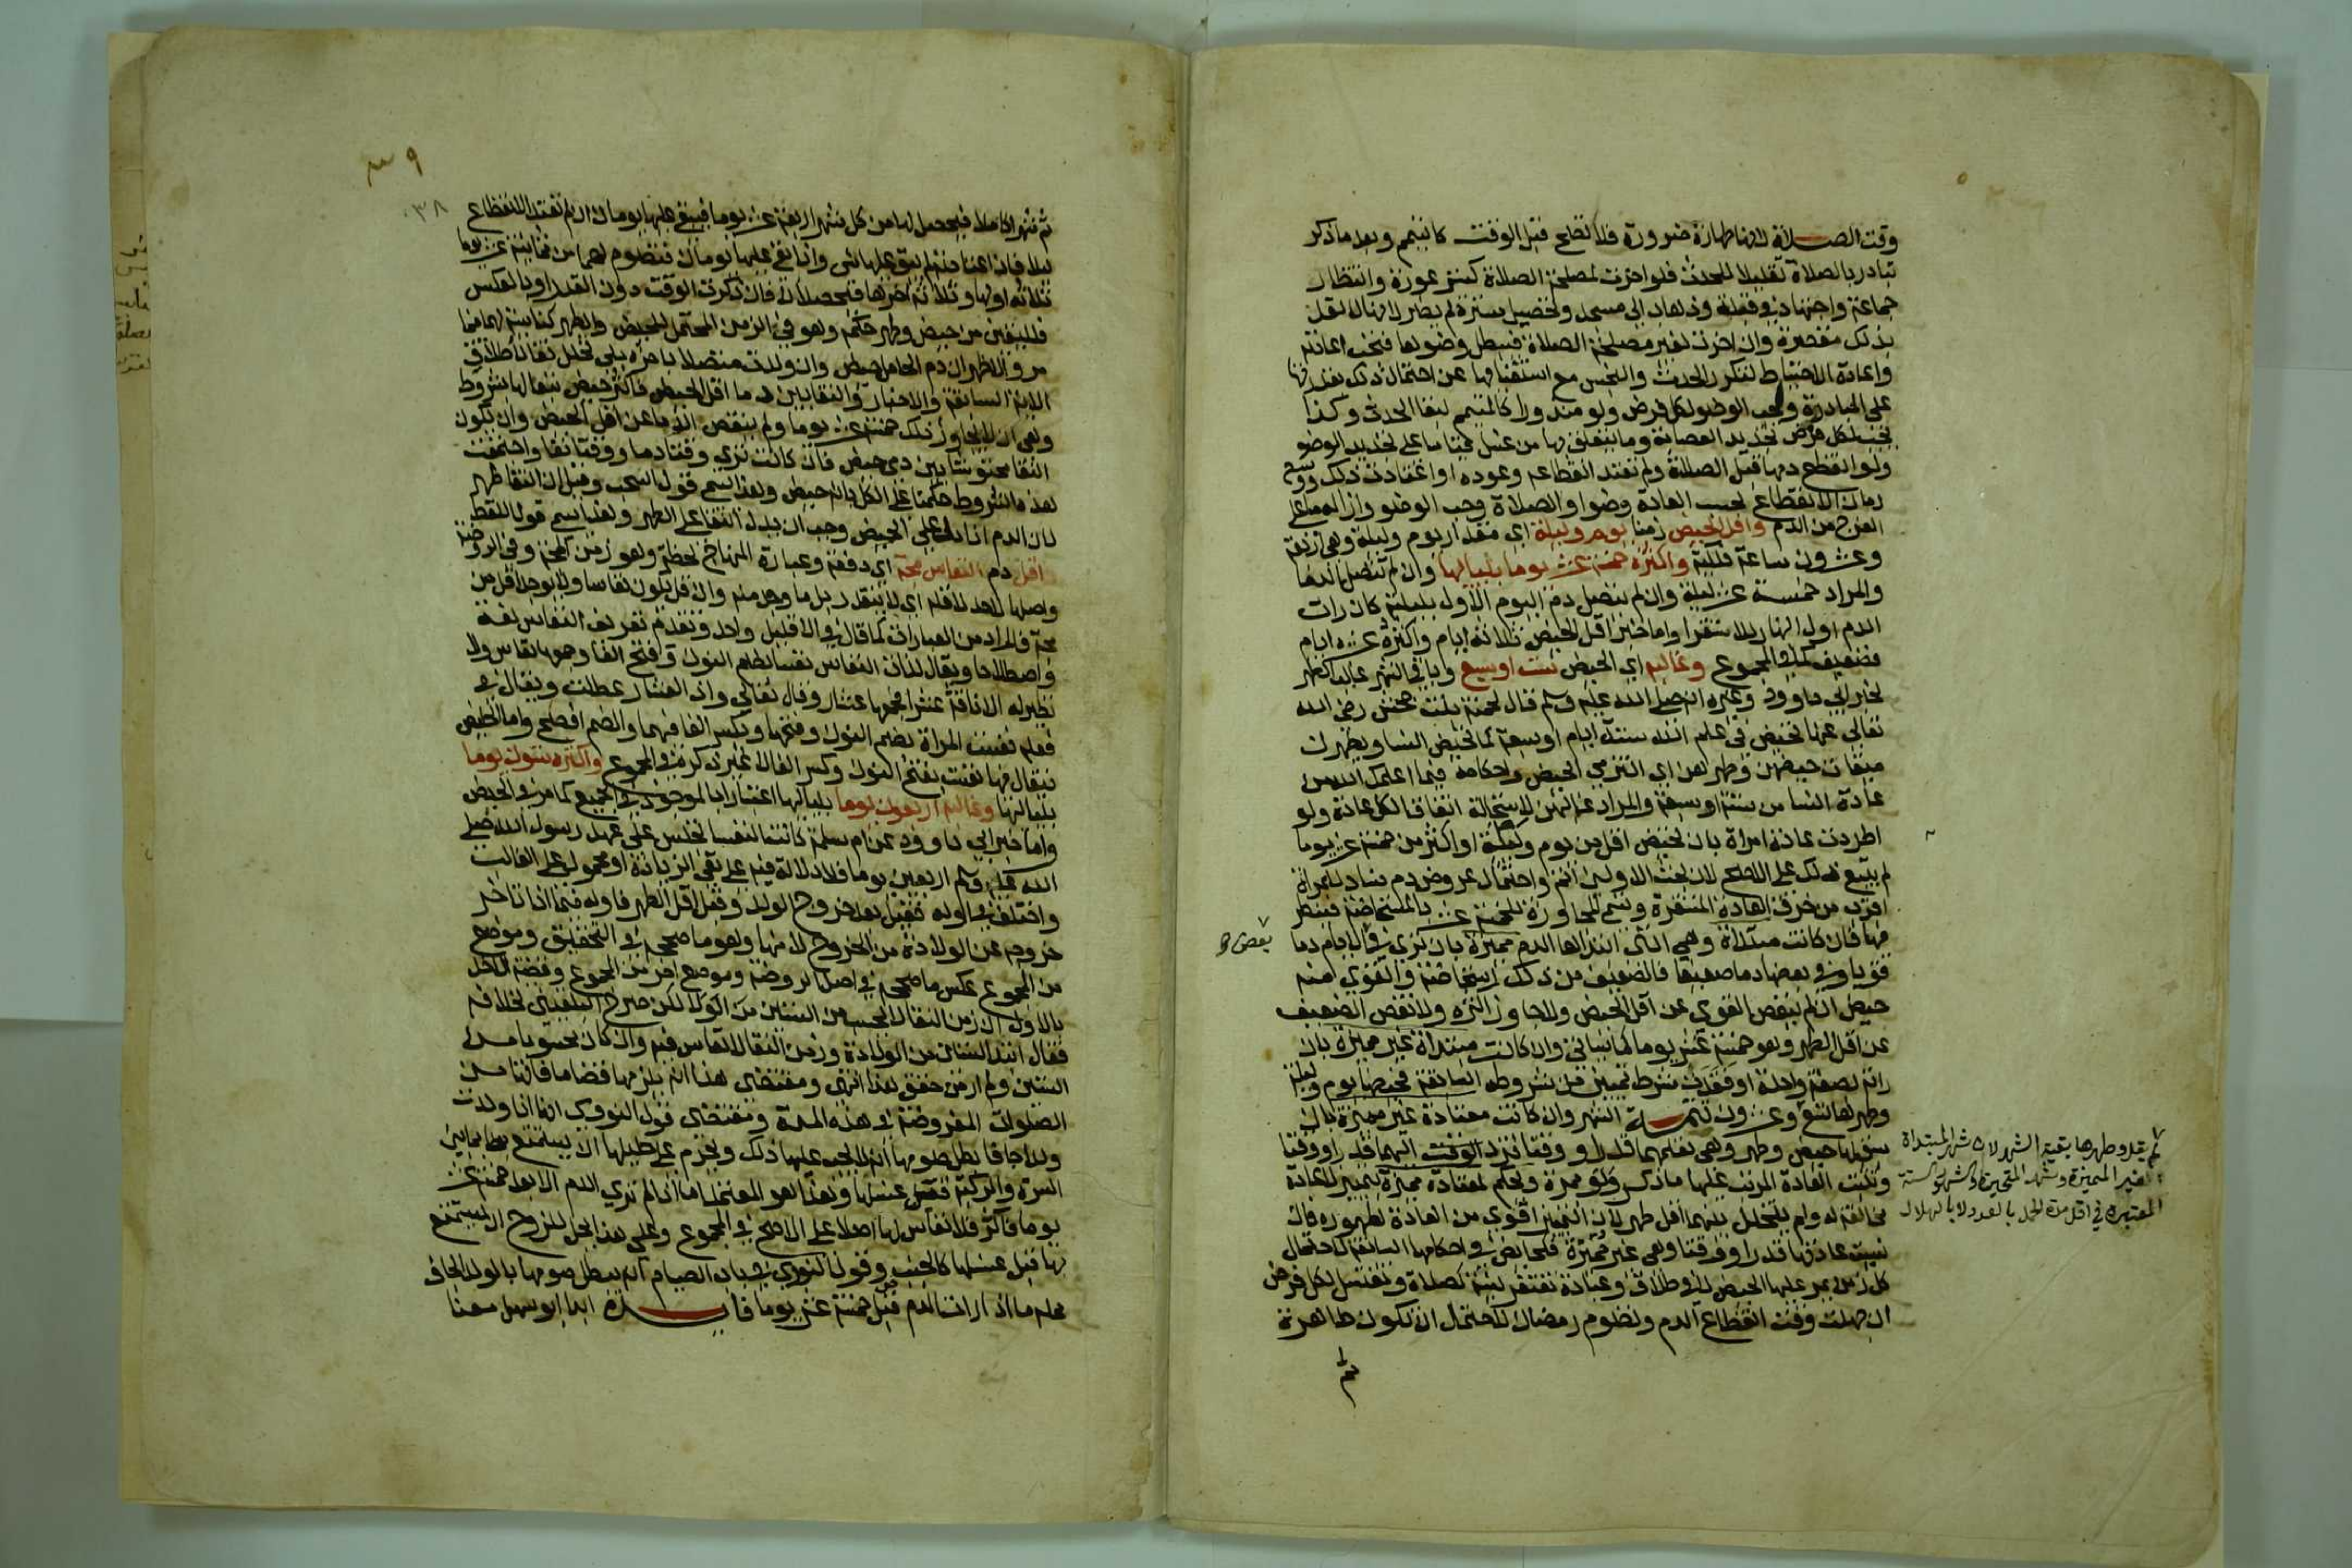 وقت الصلاة لانها طهارة ضرورة فلا تصح قبل الوقت كالتيمم وبعد ما ذكر
تبادر بالصلاة تقليلا للحدث فلو اخرت لمصلحة الصلاة كستر عورة وانتظار
جماعة واجتهاد في قبلة وذهاب الى مسجد وتحصيل سترة لم يضر لانها لا تعد
بذلك مقصرة وان اخرت لغير مصلحة الصلاة فيبطل وضوها فتجب اعادته
واعادة الاحتياط لتكرر الحدث والنجس مع استغنائها عن احتمال ذلك بقدرتها
على المبادرة ويجب الوضو لكل فرض ولو منذورا كالمتيمم لبقا الحدث وكذا
يجب لكل فرض تجديد العصابة وما يتعلق بها من غسل قياسا على تجديد الوضو
ولو انقطع دمها قبل الصلاة ولم تعتد انقطاعه وعوده او اعتادت ذلك ووسع
زمان الانقطاع بحسب العادة وضوا والصلاة وجب الوضو وازالة ما على
الفرج من الدم واقل الحيض زمنا يوم وليلة اي مقدار يوم وليلة وهي اربعة
وعشرون ساعة فلكية واكثره خمسة عشر يوما بلياليها وان لم تتصل الدما
والمراد خمسة عشر ليلة وان لم يتصل دم اليوم الاول بليلته كان رات
الدم اول النهار للاستقرا واما خبر اقل الحيض ثلاثة ايام واكثره عشرة ايام
فضعيف كما في المجموع وغالبه اي الحيض ست او سبع وباقي الشهر غالب الطهر
لخبر ابي داوود وغيره انه صلى الله عليه وسلم قال لحمنة بنت جحش رضي الله
تعالى عنها تحيضي في علم الله ستة ايام او سبعة كما تحيض النسا ويطهرن
ميقات حيضهن وطهرهن اي التزمي الحيض واحكامه فيما اعلمك الله من
عادة النسا من ستة او سبعة والمراد غالبهن لاستحالة اتفاق الكل عادة ولو
اطردت عادة امراة بان تحيض اقل من يوم وليلة او اكثر من خمسة عشر يوما
لم يتبع ذلك على الاصح لان بحث الاولين اتم واحتمال عروض دم فساد للمراة
اقرب من خرق العادة المستقرة وتسمى المجاوزة للخمسة عشر بالمستحاضة فينظر
فيها فان كانت مبتداة وهي التي ابتداها الدم مميزة بان ترى في بعض الايام دما
قويا وفي بعضها دما ضعيفا فالضعيف من ذلك استحاضة والقوي منه
حيض ان لم ينقص القوي عن اقل الحيض ولا جاوز اكثره ولا نقص الضعيف
عن اقل الطهر وهو خمسة عشر يوما كما سياتي وان كانت مبتداة غير مميزة بان
راته بصفة واحدة او فقدت شرط تمييز من شروطه السابقة فحيضها يوم وليلة
وطهرها تسع وعشرون تتمة الشهر وان كانت معتادة غير مميزة بان
سبق لها حيض وطهر وهي تعلمهما قدرا ووقتا فترد اليهما قدرا ووقتا
وتثبت العادة المرتب عليها ما ذكر ولو بمرة ويحكم لمعتادة مميزة بتمييز لا عادة
مخالفة له ولم يتخلل بينهما اقل طهر لان التمييز اقوى من العادة لظهوره فان
نسيت عادتها قدرا ووقتا وهي غير مميزة فكحائض في احكامها السابقة لاحتمال
كل زمن يمر عليها الحيض لا في طلاق وعبادة تفتقر لنية كصلاة وتغتسل لكل فرض
ان جهلت وقت انقطاع الدم وتصوم رمضان لاحتمال ان تكون طاهرة
ثم
لم يقل وطهرها بقية الشهر لان شهر المبتداة
غير المميزة وشهر المتحيرة كالشهور الستة
المعتبرة في اقل مدة الحمل بالعدد لا بالهلال
٣٩
٣٨
ثم شهرا كاملا فيحصل لها من كل شهر اربعة عشر يوما فيبقى عليها يومان ان لم تعتد الانقطاع
ليلا فان اعتادته لم يبق عليها شي واذا بقي عليها يومان فتصوم لهما من ثمانية عشر يوما
ثلاثة اولها وثلاثة اخرها فيحصلان فان ذكرت الوقت دون القدر او بالعكس
فلليقين من حيض وطهر حكمه وهو في الزمن المحتمل للحيض والطهر كناسية لهما فيما
مر والاظهر ان دم الحامل حيض وان ولدت متصلا باخره بلا تخلل نقا لاطلاق
الاية السابقة والاخبار والنقا بين دما اقل الحيض فاكثر حيض تبعا لها بشروط
وهي ان لا يجاوز ذلك خمسة عشر يوما ولم ينقص الدما عن اقل الحيض وان يكون
النقا محتوشا بين دمي حيض فان كانت ترى وقتا دما ووقتا نقا واجتمعت
هذه الشروط حكمنا على الكل بانه حيض وهذا يسمى قول السحب وقيل ان النقا طهر
لان الدم اذا دل على الحيض وجب ان يدل النقا على الطهر وهذا يسمى قول اللقط
اقل دم النفاس مجة اي دفعة وعبارة المنهاج لحظة وهو زمن المجة وفي الروضة
واصلها لا حد لاقله اي لا يتقدر بل ما وجد منه وان قل يكون نفاسا ولا يوجد اقل من
مجة فالمراد من العبارات كما قال في الاقليد واحد وتقدم تعريف النفاس لغة
واصطلاحا ويقال لذات النفاس نفسا بضم النون وفتح الفا وجمعها نفاس ولا
نظير له الا ناقة عشرا فجمعها عشار وقال تعالى واذا العشار عطلت ويقال في
فعله نفست المراة بضم النون وفتحها وبكسر الفا فيهما والضم افصح واما الحائض
فيقال فيها نفست بفتح النون وكسر الفا لا غير ذكره في المجموع واكثره ستون يوما
بلياليها وغالبه اربعون يوما بلياليها اعتبارا بالوجود في الجميع كما مر في الحيض
واما خبر ابي داوود عن ام سلمة كانت النفسا تجلس على عهد رسول الله صلى
الله عليه وسلم اربعين يوما فلا دلالة فيه على نفي الزيادة او محمول على الغالب
واختلف في اوله فقيل بعد خروج الولد وقبل اقل الطهر فاوله فيما اذا تاخر
خروجه عن الولادة من الخروج لا منها وهو ما صححه في التحقيق وموضع
من المجموع عكس ما صححه في اصل الروضة وموضع اخر من المجموع وقضية الاخذ
بالاول ان زمن النقا لا يحسب من الستين من الولادة لكن صرح البلقيني بخلافه
فقال ابتدا الستين من الولادة وزمن النقا لا نفاس فيه وان كان محسوبا من
الستين ولم ار من حقق هذا انتهى ومقتضى هذا انه يلزمها قضا ما فاتها من
الصلوات المفروضة في هذه المدة ومقتضى قول النووي انها اذا ولدت
ولدا جافا بطل صومها انه لا يجب عليها ذلك ويحرم على حليلها ان يستمتع بما بين
السرة والركبة قبل غسلها وهذا هو المعتمد اما اذا لم تر الدم الا بعد خمسة عشر
يوما فاكثر فلا نفاس لها اصلا على الاصح في المجموع وعلى هذا يحل للزوج ان يستمتع
بها قبل غسلها كالجنب وقول النووي في باب الصيام انه يبطل صومها بالولد الجاف
محله ما اذا رات الدم قبل خمسة عشر يوما فائدة ابدا ابو سهل معنا